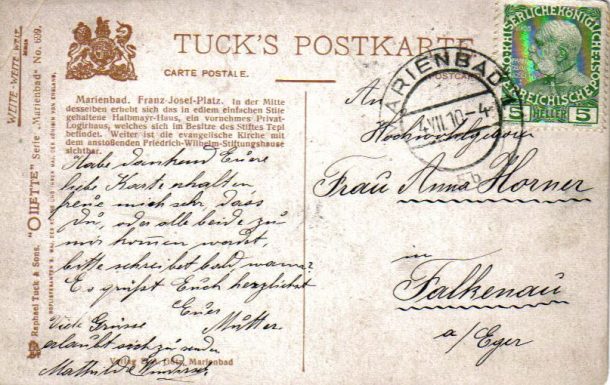 TUCK'S POSTKARTE
CARTE POSTALE.
POSTCARD
Marienbad. Franz-Josef-Platz. In der Mitte
desselben erhebt sich das in edlem einfachen Stile
gehaltene Halbmayr-Haus, ein vornehmes Privat-
Logirhaus, welches sich im Besitze des Stiftes Tepl
befindet. Weiter ist die evangelische Kirche mit
dem anstoßenden Friedrich-Wilhelm-Stiftungshause
sichtbar.
Habe dankend Euere
liebe Karte erhalten,
freue mich sehr, dass
Du, oder alle beide zu
mir kommen werdet,
bitte schreibet bald wann?
Es grüßt Euch herzlichst
Euer
Mutter
Viele Grüsse
erlaubt sich zu senden
Mathilde
Verlag Marienbad
An
Hochwohlgeboren
Frau Anna Horner
in
Falkenau
a/Eger
MARIENBAD 1
4.VII.10-4
5b
KAISERLICHE KÖNIGLICHE
OESTERREICHISCHE POST
5 HELLER 5
WEITE WEITE WELT
"OILETTE" Serie "Marienbad" No. 699.
Raphael Tuck & Sons.